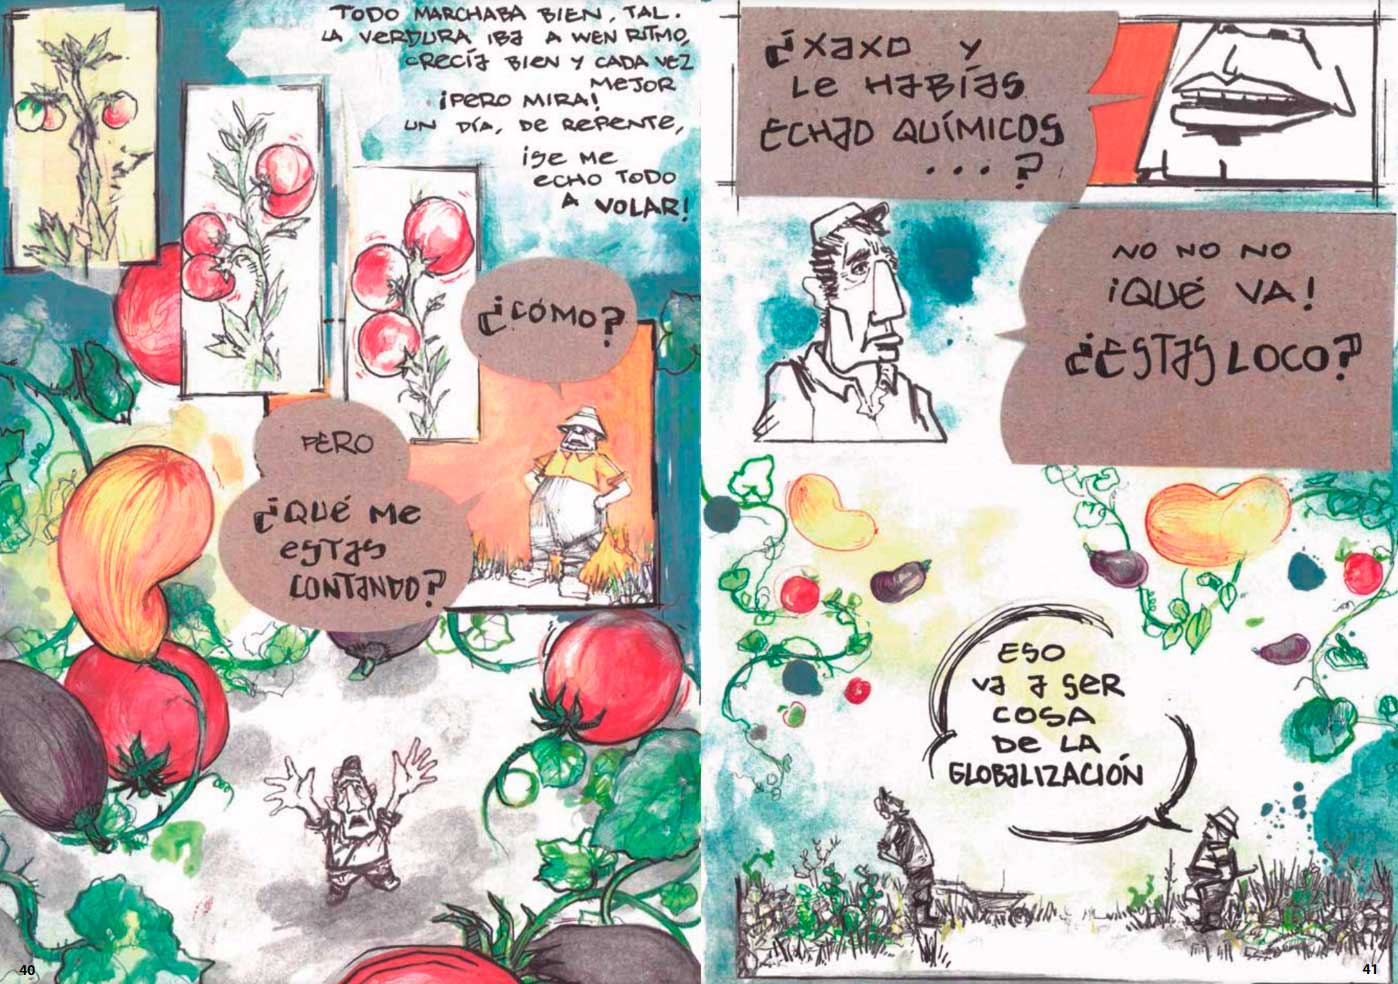 TODO MARCHABA BIEN, TAL.
LA VERDURA IBA A WEN RITMO,
CRECÍA BIEN Y CADA VEZ
MEJOR
¡PERO MIRA!
UN DÍA, DE REPENTE,
¡SE ME
ECHO TODO
A VOLAR!
¿CÓMO?
PERO
¿QUÉ ME
ESTAS
CONTANDO?
40
¿XAXO Y
LE HABÍAS
ECHAO QUÍMICOS
...?
NO NO NO
¡QUÉ VA!
¿ESTAS LOCO?
ESO
VA A SER
COSA
DE LA
GLOBALIZACIÓN
41